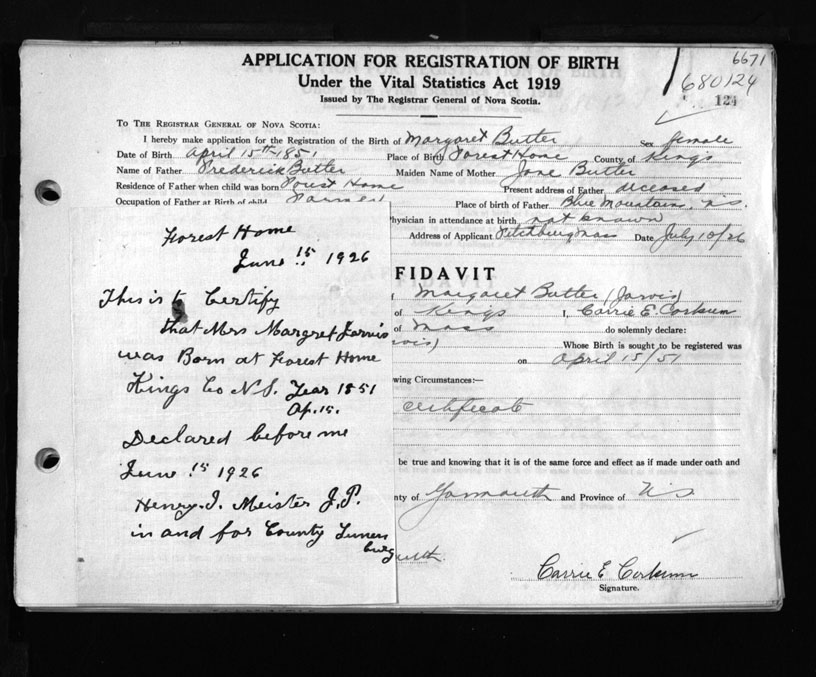 APPLICATION FOR REGISTRATION OF BIRTH
Under the Vital Statistics Act 1919
Issued by The Registrar General of Nova Scotia.
6671
680124
124
To The Registrar General of Nova Scotia:
I hereby make application for the Registration of the Birth of Margaret Butler Sex female
Date of Birth April 15th 1851 Place of Birth Forest Home County of Kings
Name of Father Frederick Butler Maiden Name of Mother Jane Butler
Residence of Father when child was born Forest Home Present address of Father deceased
Occupation of Father at Birth of child Farmer Place of birth of Father Blue Mountain, N.S.
Physician in attendance at birth not known
Address of Applicant Fitchburg Mass Date July 10/26
FFIDAVIT
Margaret Butler (Jarvis)
of Kings I, Carrie E. Corkum
of Mass do solemnly declare:
rvis) Whose Birth is sought to be registered was
on April 15/51
wing Circumstances:—
certificate
be true and knowing that it is of the same force and effect as if made under oath and
nty of Yarmouth and Province of N S
Carrie E Corkum
Signature.
Forest Home
June 15 1926
This is to Certify
that Mrs Margret Jarvis
was Born at Forest Home
Kings Co N.S. Year 1851
Ap. 15.
Declared before me
June 15 1926
Henry. I. Meister J.P.
in and for County Lunen
burg